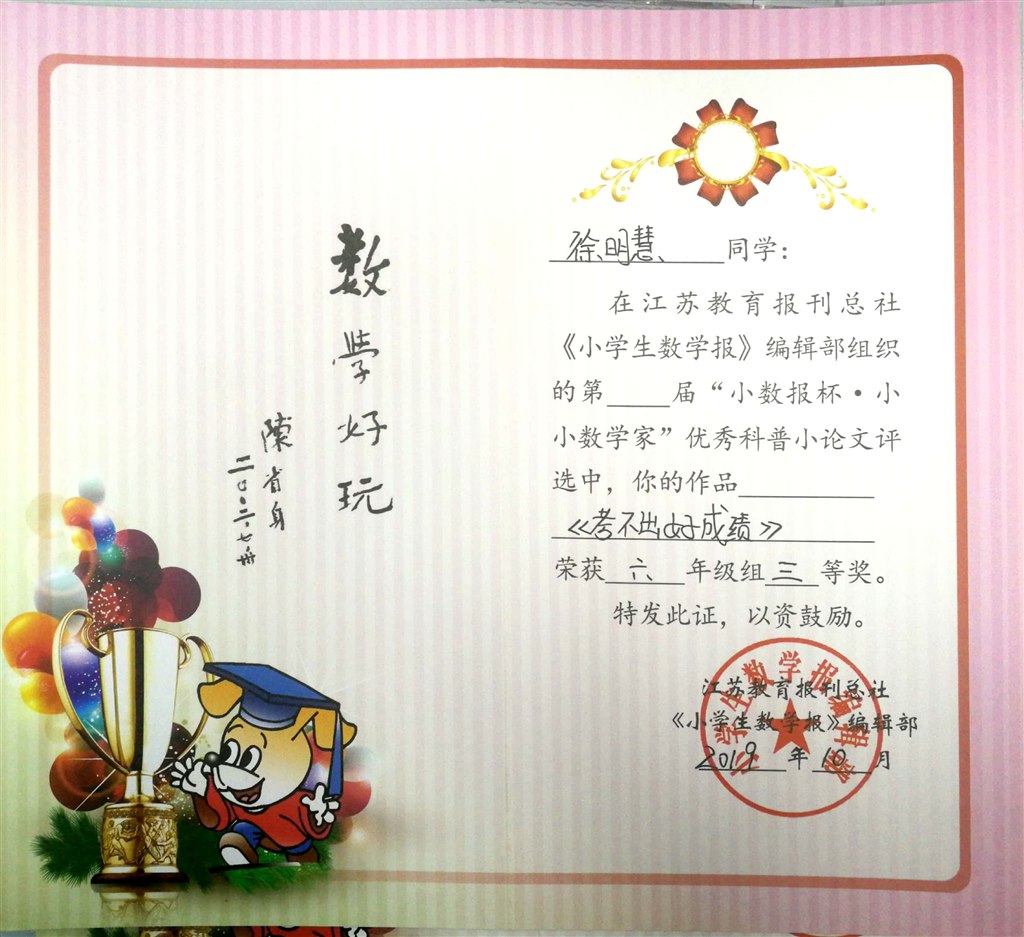 数学好玩
陳省身
徐明慧同学：
在江苏教育报刊总社
《小学生数学报》编辑部组织
的第____届“小数报杯·小
小数学家”优秀科普小论文评
选中，你的作品__________
《考不出好成绩》
荣获六年级组三等奖。
特发此证，以资鼓励。
江苏教育报刊总社
《小学生数学报》编辑部
2019年10月
小学生数学报编辑部